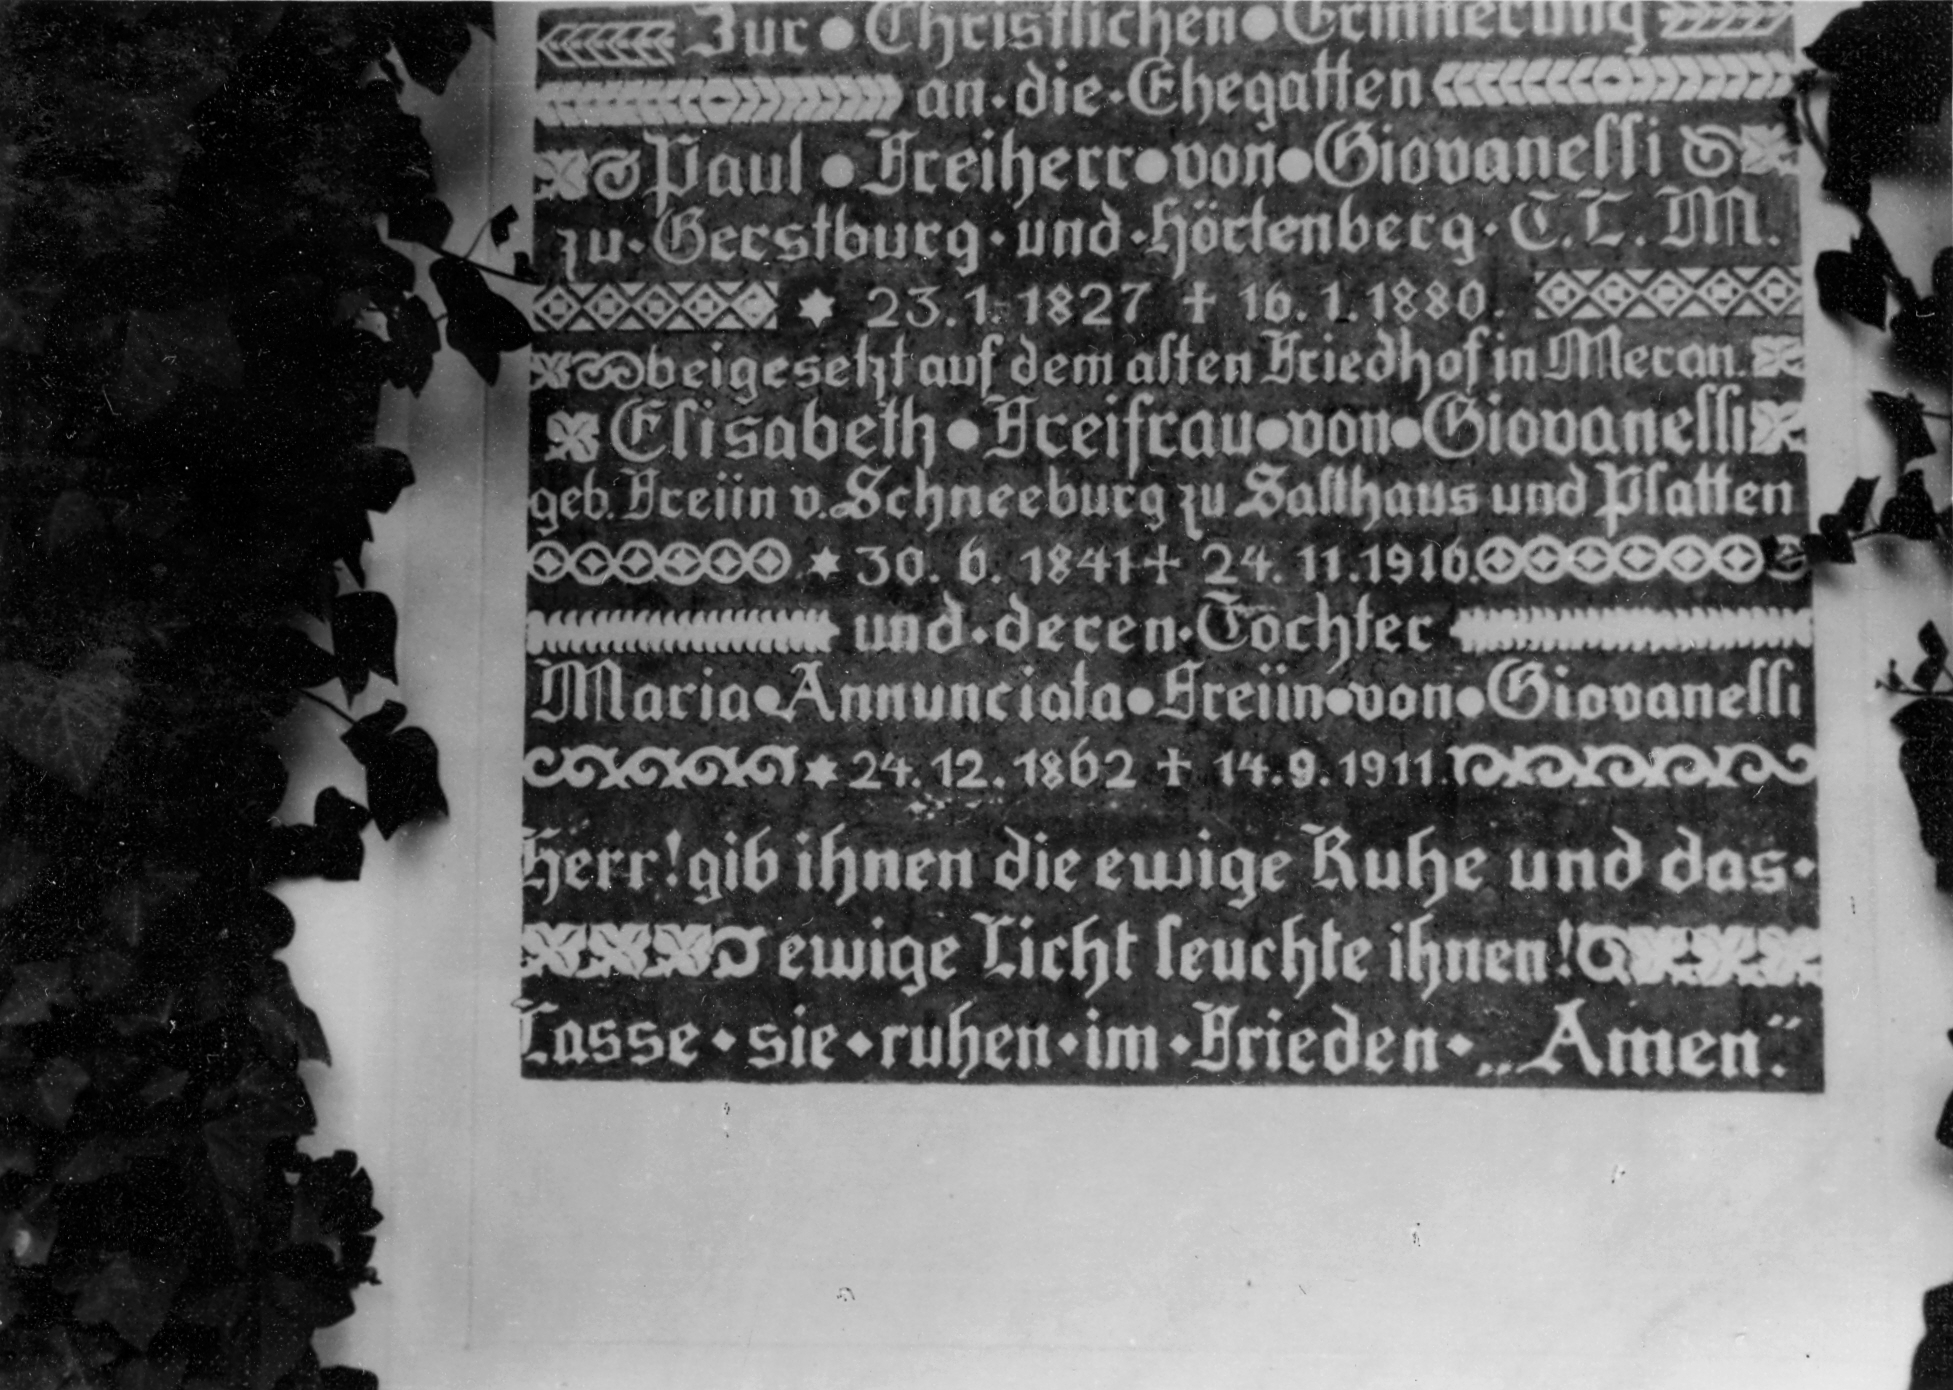 Zur • Christlichen • Erinnerung
an · die · Ehegatten
Paul • Freiherr • von • Giovanelli
zu · Gerstburg · und · Hörtenberg · T. L. M.
✶ 23. 1. 1827 † 16. 1. 1880.
beigesetzt auf dem alten Friedhof in Meran.
Elisabeth • Freifrau • von • Giovanelli
geb. Freiin v. Schneeburg zu Salthaus und Platten
✶ 30. 6. 1841 † 24. 11. 1916.
und · deren · Tochter
Maria • Annunciata • Freiin • von • Giovanelli
✶ 24. 12. 1862 † 14. 9. 1911.
Herr! gib ihnen die ewige Ruhe und das ·
ewige Licht leuchte ihnen!
Lasse · sie · ruhen · im · Frieden · „Amen."